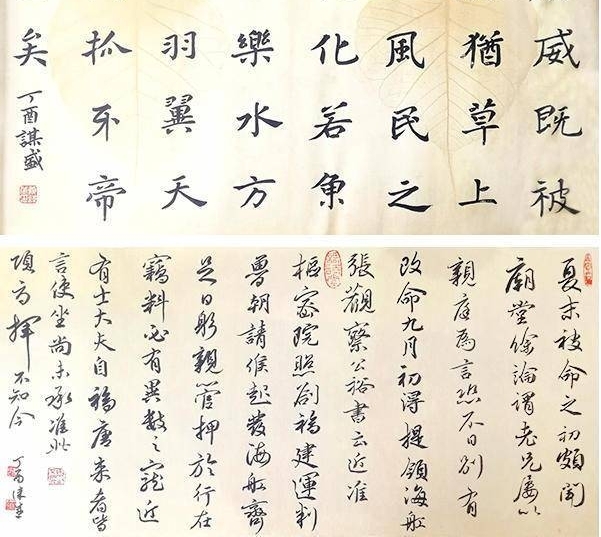 威既被
猶草上
風民之
化若魚
樂水方
羽翼天
不帝
矣
丁酉謀盛
夏末被命之初頗聞
廟堂餘論謂老兄屢以
親庭為言恐不日別有
改命九月初得提領海船
張觀察公裕書云近准
樞密院照劄福建運判
魯朝請候起發海船齊
足日躬親管押於行在
竊料必有異數之寵近
有士大夫自福唐來者皆
言使坐尚未承准此
項 揮不知今
丁酉